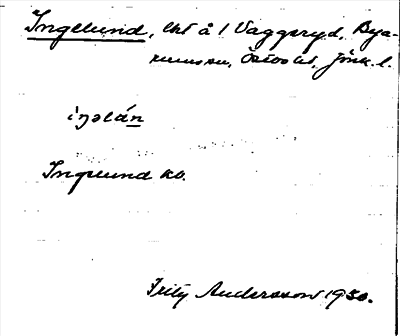 Ingelund, lht å 1 Vaggeryd, Bya-
rums sn, Östbo hd, Jönk. l.
iŋəlán
Inglund ko.
Fritz Andersson 1930.